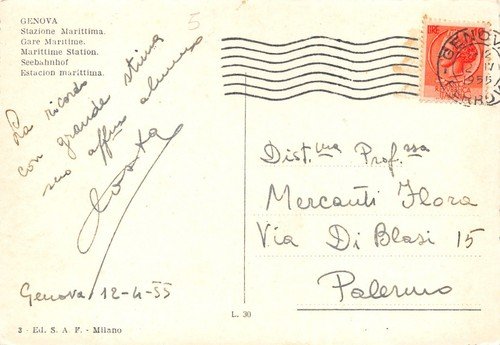 GENOVA
Stazione Marittima.
Gare Maritime.
Maritime Station.
Seebahnhof
Estacion marittima.
5
ricordo
con grande stima
suo aff.mo alunno
Costa
Genova 12-4-55
3 - Ed. S. A. F. - Milano
L. 30
GENOVA
Dist.ma Prof.ssa
Mercanti Flora
Via Di Blasi 15
Palermo